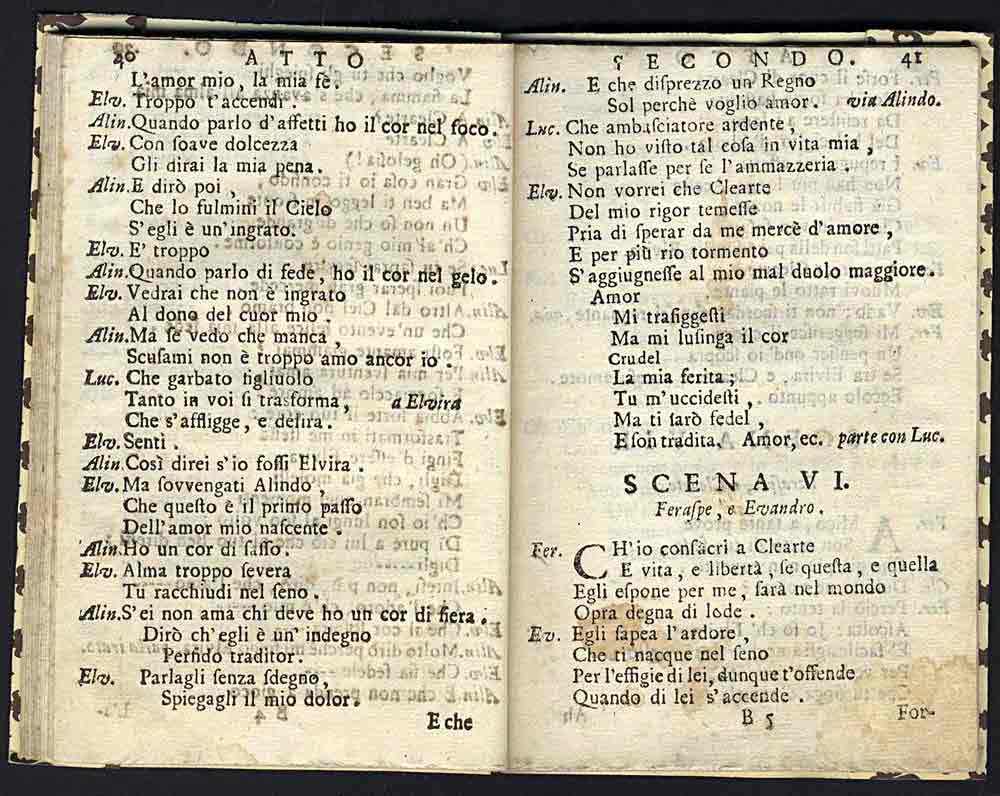 40 ATTO
L'amor mio, la mia fe.
Elv. Troppo t'accendi.
Alin. Quando parlo d'affetti ho il cor nel foco.
Elv. Con ſoave dolcezza
Gli dirai la mia pena.
Alin. E dirò poi,
Che lo fulmini il Cielo
S'egli è un' ingrato.
Elv. E' troppo
Alin. Quando parlo di fede, ho il cor nel gelo.
Elv. Vedrai che non è ingrato
Al dono del cuor mio.
Alin. Ma ſe vedo che manca,
Scuſami non è troppo amo ancor io.
Luc. Che garbato figliuolo
Tanto in voi ſi trasforma, a Elvira
Che s'affligge, e deſira.
Elv. Senti.
Alin. Così direi s'io foſſi Elvira.
Elv. Ma ſovvengati Alindo,
Che queſto è il primo paſſo
Dell'amor mio naſcente.
Alin. Ho un cor di ſaſſo.
Elv. Alma troppo ſevera
Tu racchiudi nel ſeno.
Alin. S'ei non ama chi deve ho un cor di fiera.
Dirò ch'egli è un' indegno
Perfido traditor.
Elv. Parlagli ſenza ſdegno,
Spiegagli il mio dolor.
E che
SECONDO. 41
Alin. E che diſprezzo un Regno
Sol perchè voglio amor. via Alindo.
Luc. Che ambaſciatore ardente,
Non ho viſto tal coſa in vita mia,
Se parlaſſe per ſe l'ammazzeria.
Elv. Non vorrei che Clearte
Del mio rigor temeſſe
Pria di ſperar da me mercè d'amore,
E per più rio tormento
S'aggiugneſſe al mio mal duolo maggiore.
Amor
Mi trafiggeſti
Ma mi luſinga il cor
Crudel
La mia ferita;
Tu m'uccideſti,
Ma ti ſarò fedel,
E ſon tradita. Amor, ec. parte con Luc.
SCENA VI.
Feraſpe, e Evandro.
Fer. CH'io conſacri a Clearte
E vita, e libertà, ſe queſta, e quella
Egli eſpone per me, ſarà nel mondo
Opra degna di lode.
Ev. Egli ſapea l'ardore,
Che ti nacque nel ſeno
Per l'effigie di lei, dunque t'offende
Quando di lei s'accende.
B 5 For-